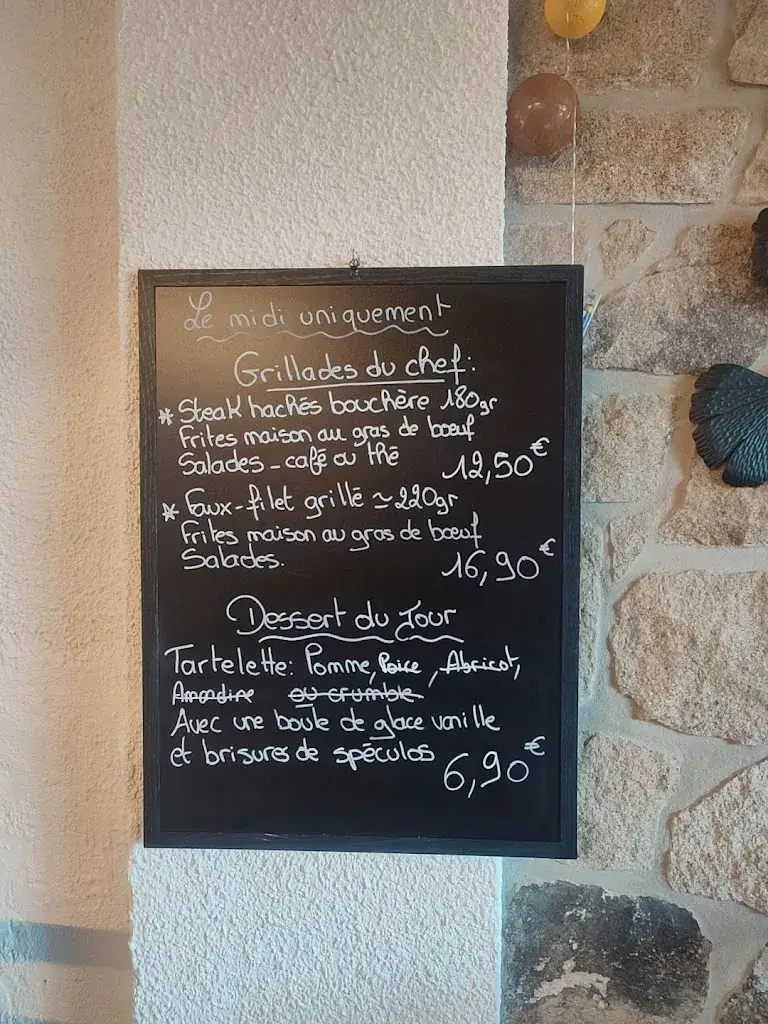 Le midi uniquement
Grillades du chef:
* Steak hachés bouchère 180gr
Frites maison au gras de bœuf
Salades - café ou thé 12,50€
* Faux-filet grillé ≃ 220gr
Frites maison au gras de bœuf
Salades. 16,90€
Dessert du Jour
Tartelette: Pomme, Poire, Abricot,
Amandine ou crumble
Avec une boule de glace vanille
et brisures de spéculos 6,90€